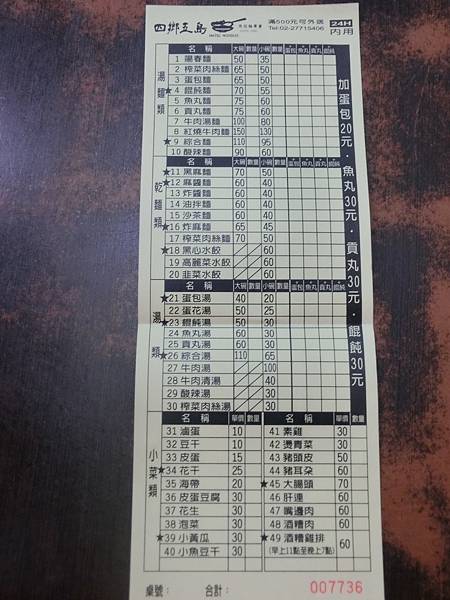 四鄉五島 馬祖麵專賣 滿500元可外送 24H
MATSU NOODLES Tel:02-27715406 內用
湯麵類 名稱 大碗 數量 小碗 數量 蛋包 魚丸 貢丸 餛飩
1 陽春麵 50 35
2 榨菜肉絲麵 65 50
3 蛋包麵 65 50
★4 餛飩麵 70 55
5 魚丸麵 75 60
6 貢丸麵 75 60
7 牛肉湯麵 100 80
8 紅燒牛肉麵 150 130
★9 綜合麵 110 95
10 酸辣麵 90 60
乾麵類 名稱 大碗 數量 小碗 數量 蛋包 魚丸 貢丸 餛飩
★11 黑麻麵 70 50
★12 麻醬麵 60 40
13 炸醬麵 60 40
14 油拌麵 60 40
15 沙茶麵 60 40
★16 炸麻麵 65 45
17 榨菜肉絲麵 70 50
★18 黑心水餃 60
19 高麗菜水餃 60
20 韭菜水餃 60
湯類 名稱 大碗 數量 小碗 數量 蛋包 魚丸 貢丸 餛飩
★21 蛋包湯 40 20
22 蛋花湯 50 25
★23 餛飩湯 50 30
24 魚丸湯 50 30
25 貢丸湯 50 30
★26 綜合湯 110 65
27 牛肉湯 100
28 牛肉清湯 40
29 酸辣湯 30
30 榨菜肉絲湯 30
加蛋包20元・魚丸30元・貢丸30元・餛飩30元
小菜類 名稱 單價 數量 名稱 單價 數量
31 滷蛋 10 41 素雞 30
32 豆干 10 42 燙青菜 30
33 皮蛋 15 43 豬頭皮 50
★34 花干 25 44 豬耳朵 50
35 海帶 20 ★45 大腸頭 70
36 皮蛋豆腐 30 46 肝連 60
37 花生 30 47 嘴邊肉 60
38 泡菜 30 48 酒糟肉 60
★39 小黃瓜 30 ★49 酒糟雞排 60
40 小魚豆干 30 (早上11點至晚上7點)
桌號: 合計: 007736